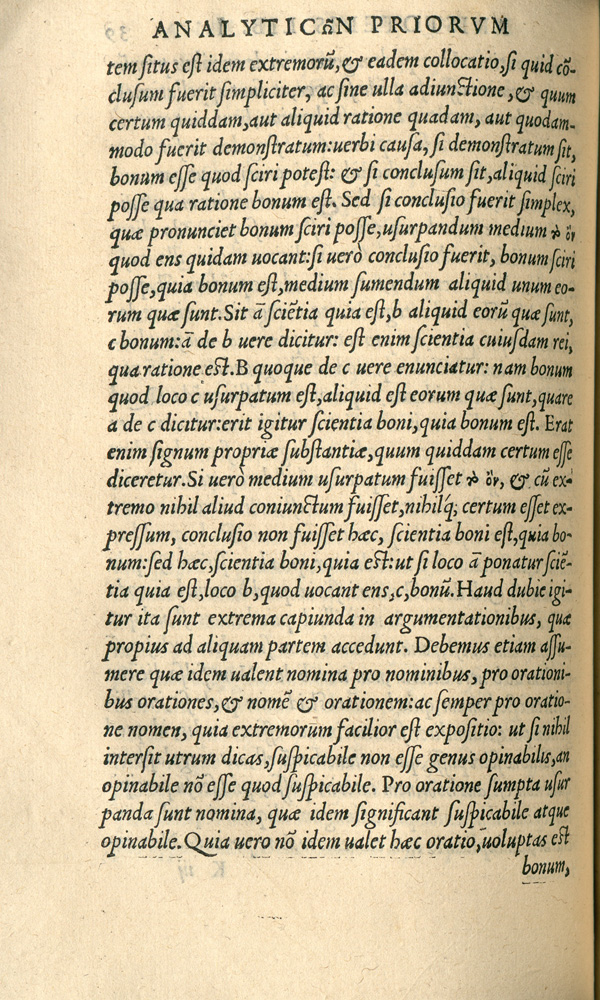 ANALYTICῶN PRIORVM
tem ſitus eſt idem extremorū, & eadem collocatio, ſi quid cō-
cluſum fuerit ſimpliciter, ac ſine ulla adiunctione, & quum
certum quiddam, aut aliquid ratione quadam, aut quodam-
modo fuerit demonſtratum: uerbi cauſa, ſi demonſtratum ſit,
bonum eſſe quod ſciri poteſt: & ſi concluſum ſit, aliquid ſciri
poſſe qua ratione bonum eſt. Sed ſi concluſio fuerit ſimplex,
quæ pronunciet bonum ſciri poſſe, uſurpandum medium τὸ ὂν
quod ens quidam uocant: ſi uerò concluſio fuerit, bonum ſciri
poſſe, quia bonum eſt, medium ſumendum aliquid unum eo-
rum quæ ſunt. Sit ā ſciētia quia eſt, b aliquid eorū quæ ſunt,
c bonum: ā de b uere dicitur: eſt enim ſcientia cuiuſdam rei,
qua ratione eſt. B quoque de c uere enunciatur: nam bonum
quod loco c uſurpatum eſt, aliquid eſt eorum quæ ſunt, quare
a de c dicitur: erit igitur ſcientia boni, quia bonum eſt. Erat
enim ſignum propriæ ſubſtantiæ, quum quiddam certum eſſe
diceretur. Si uerò medium uſurpatum fuiſſet τὸ ὂν, & cū ex-
tremo nihil aliud coniunctum fuiſſet, nihilq́; certum eſſet ex-
preſſum, concluſio non fuiſſet hæc, ſcientia boni eſt, quia bo-
num: ſed hæc, ſcientia boni, quia eſt: ut ſi loco ā ponatur ſciē-
tia quia eſt, loco b, quod uocant ens, c, bonū. Haud dubie igi-
tur ita ſunt extrema capiunda in argumentationibus, quæ
propius ad aliquam partem accedunt. Debemus etiam aſſu-
mere quæ idem ualent nomina pro nominibus, pro orationi-
bus orationes, & nomē & orationem: ac ſemper pro oratio-
ne nomen, quia extremorum facilior eſt expoſitio: ut ſi nihil
interſit utrum dicas, ſuſpicabile non eſſe genus opinabilis, an
opinabile nō eſſe quod ſuſpicabile. Pro oratione ſumpta uſur
panda ſunt nomina, quæ idem ſignificant ſuſpicabile atque
opinabile. Quia uero nō idem ualet hæc oratio, uoluptas eſt
bonum,